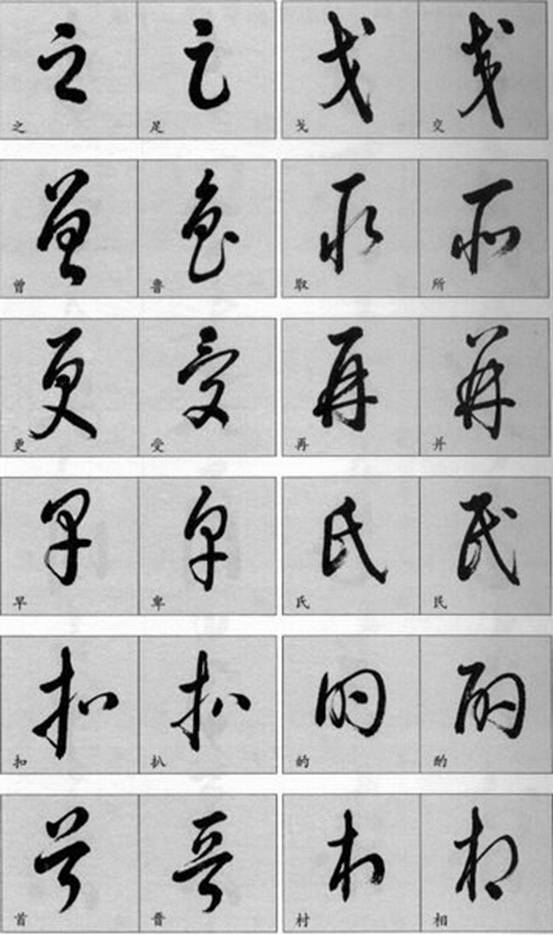 之 足 戈 交
曾 鲁 取 所
更 受 再 并
早 卑 氏 民
扣 扒 的 酌
首 晋 村 相